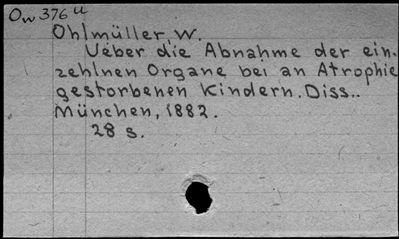 Ow 376 u
Ohlmüller, W.
Ueber die Abnahme der ein-
zehlnen Organe bei an Atrophie
gestorbenen Kindern. Diss..
München, 1882.
28 s.